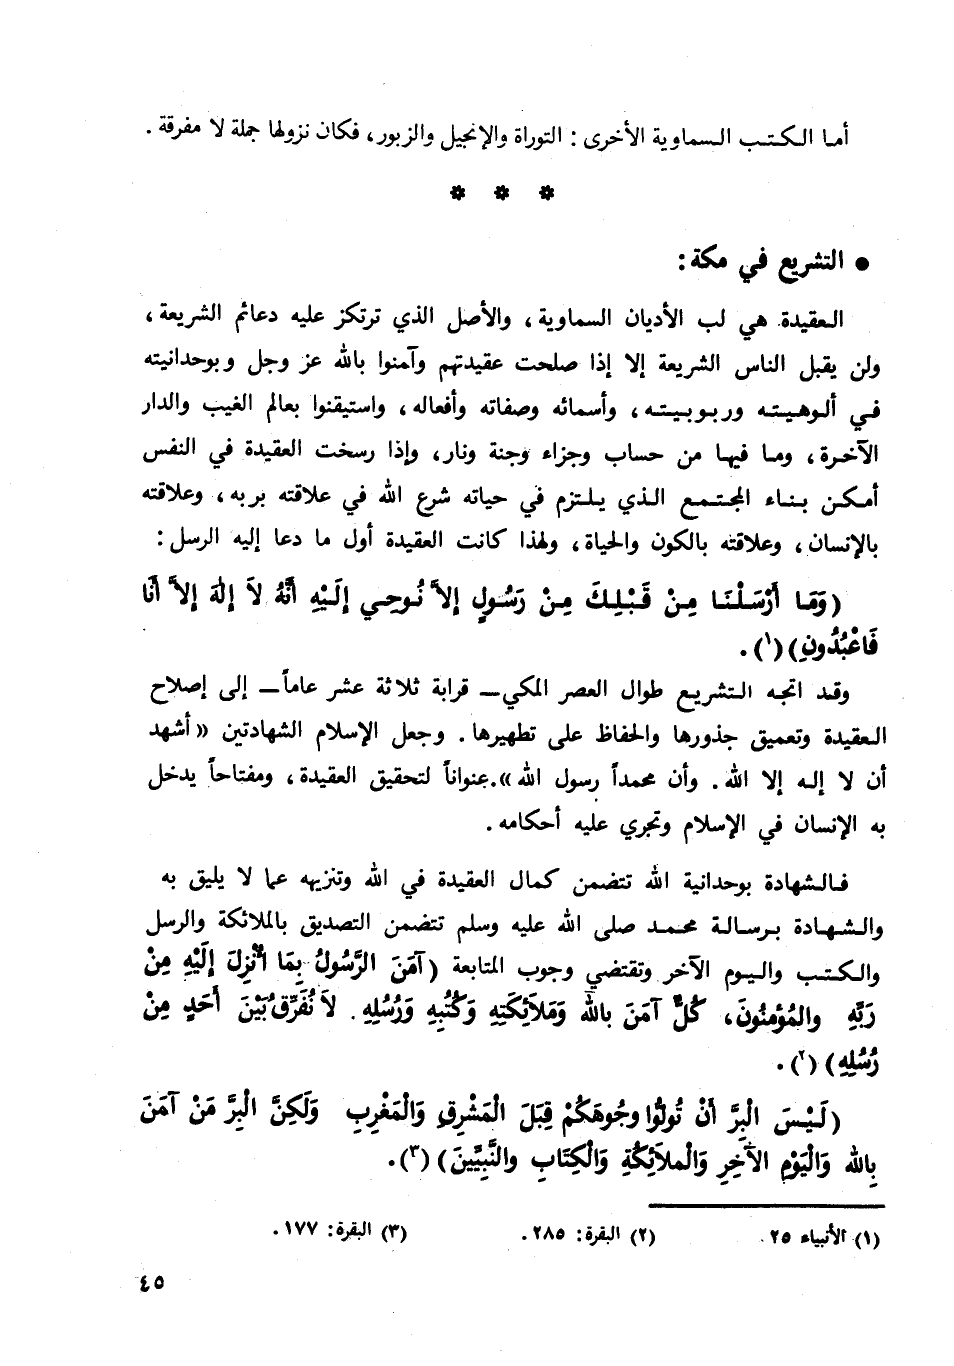 أما الكتب السماوية الأخرى : التوراة والإنجيل والزبور، فكان نزولها جملة لا مفرقة .
* * *
• التشريع في مكة :
العقيدة هي لب الأديان السماوية، والأصل الذي ترتكز عليه دعائم الشريعة،
ولن يقبل الناس الشريعة إلا إذا صلحت عقيدتهم وآمنوا بالله عز وجل وبوحدانيته
في ألوهيته وربوبيته، وأسمائه وصفاته وأفعاله، واستيقنوا بعالم الغيب والدار
الآخرة، وما فيها من حساب وجزاء وجنة ونار، وإذا رسخت العقيدة في النفس
أمكن بناء المجتمع الذي يلتزم في حياته شرع الله في علاقته بربه، وعلاقته
بالإنسان، وعلاقته بالكون والحياة، ولهذا كانت العقيدة أول ما دعا إليه الرسل :
(وَمَا أَرْسَلْنَا مِنْ قَبْلِكَ مِنْ رَسُولٍ إلاَّ نُوحِي إلَيْهِ أَنَّهُ لاَ إلَهَ إلاَّ أَنَا
فَاعْبُدُونِ) (١) .
وقد اتجه التشريع طوال العصر المكي — قرابة ثلاثة عشر عاماً — إلى إصلاح
العقيدة وتعميق جذورها والحفاظ على تطهيرها. وجعل الإسلام الشهادتين «أشهد
أن لا إله إلا الله. وأن محمداً رسول الله». عنواناً لتحقيق العقيدة، ومفتاحاً يدخل
به الإنسان في الإسلام وتجري عليه أحكامه .
فالشهادة بوحدانية الله تتضمن كمال العقيدة في الله وتنزيهه عما لا يليق به
والشهادة برسالة محمد صلى الله عليه وسلم تتضمن التصديق بالملائكة والرسل
والكتب واليوم الآخر وتقتضي وجوب المتابعة (آمَنَ الرَّسُولُ بِمَا أُنْزِلَ إلَيْهِ مِنْ
رَبِّهِ والمُؤْمِنُونَ، كُلٌّ آمَنَ بالله وَمَلاَئِكَتِهِ وَكُتُبِهِ وَرُسُلِهِ. لاَ نُفَرِّقُ بَيْنَ أَحَدٍ مِنْ
رُسُلِهِ) (٢) .
(لَيْسَ الْبِرَّ أَنْ تُولُّوا وجُوهَكُمْ قِبَلَ الْمَشْرِقِ وَالْمَغْرِبِ وَلَكِنَّ الْبِرَّ مَنْ آمَنَ
بِالله وَالْيَوْمِ الآخِرِ وَالْملاَئِكَةِ وَالْكِتَابِ والنَّبِيِّينَ) (٣) .
(١) الأنبياء ٢٥ . (٢) البقرة : ٢٨٥ . (٣) البقرة : ١٧٧ .
٤٥